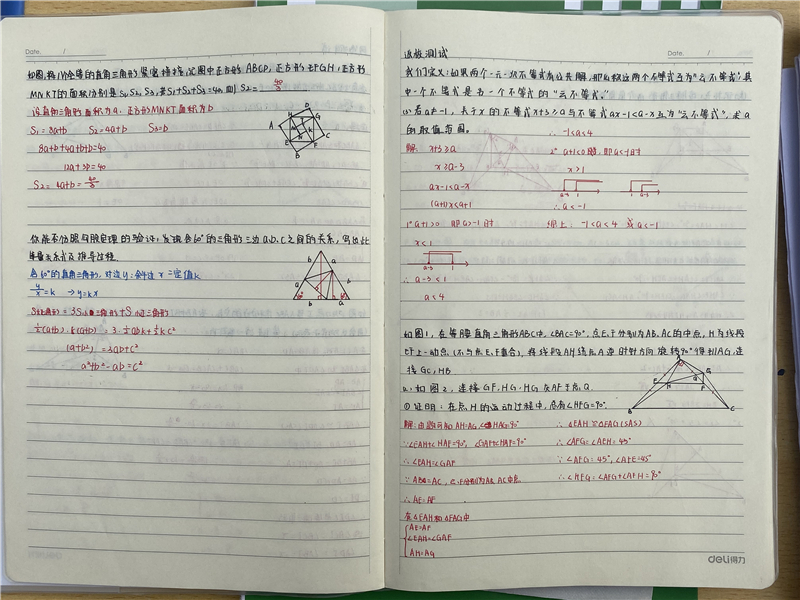 Date. /
如图,将八个全等的直角三角形紧密拼接,记图中正方形ABCD,正方形EFGH,正方形
MNKT的面积分别是S₁,S₂,S₃,若S₁+S₂+S₃=40,则S₂= 40/3
设直角三角形面积为a.正方形MNKT面积为b
S₁=8a+b S₂=4a+b S₃=b
8a+b+4a+b+b=40
12a+3b=40
S₂=4a+b=40/3
A
B
C
D
E
F
G
H
你能不仿照勾股定理的验证,发现含60°的三角形三边a,b,c之间的关系,写出此
关系式及推导过程.
含60°的直角三角形,对边y:斜边x=定值k
y/x=k →y=kx
3S
+S小三角形
½(a+b)·k(a+b) = 3·½abk+½kc²
(a+b²) =3ab+c²
a²+b²-ab=c²
b
a
b
a
Date. /
我们定义:如果两个一元一次不等式有公共解,那么称这两个不等式互为"云不等式",其
中一个不等式是另一个不等式的"云不等式."
若a≠-1,关于x的不等式x+3≥a与不等式ax-1<a-x互为"云不等式",求a
的取值范围. ∴-1<a<4
解: x+3≥a 2° a+1<0时,即a<-1时
x≥a-3 x>1
ax-1<a-x
(a+1)x<a+1 ∴a<-1
1° a+1>0 即a>-1时 综上:-1<a<4 或a<-1
x<1
a-3 1
∴a-3<1
a<4
如图1,在等腰直角三角形ABC中,∠BAC=90°,点E,F分别为AB,AC的中点,H为线段
EF上一动点(不与点E,F重合),将线段AH绕点A逆时针方向旋转90°得到AG,连
接GC,HB
如图2,连接GF,HG,HG交AF于点Q.
①证明:在点H的运动过程中,总有∠HFG=90°.
A
B
C
E
H
F
Q
G
解:由题可知AH=AG,∠HAG=90° ∴△EAH≌△FAG(SAS)
∵∠EAH+∠HAF=90°, ∠GAF+∠HAF=90° ∴∠AFG=∠AEH=45°
∴∠EAH=∠GAF ∵∠AFG=45°,∠AFE=45°
∵AB=AC,E,F分别为AB,AC中点 ∴∠HFG=∠AFG+∠AFH=90°
∴AE=AF
在△EAH和△FAG中
AE=AF
∠EAH=∠GAF
AH=AG
deli得力